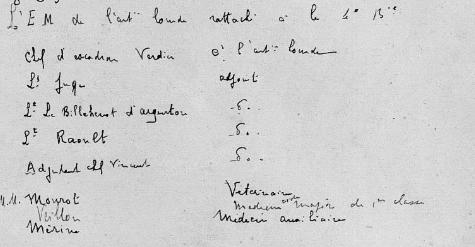 L'EM de l'arti lourde rattaché à la 4e Bie
Chef d'escadron Verdier à l'artie lourde
Lt Juge adjoint
Lt Le Billehenot d'argenton _d°_
Lt Raoult _d°_
Adjudant chef Vincent _d°_
M.M. Mourot Vétérinaire
Veillon Médecin major de 1ère classe
Mérine Médecin auxiliaire